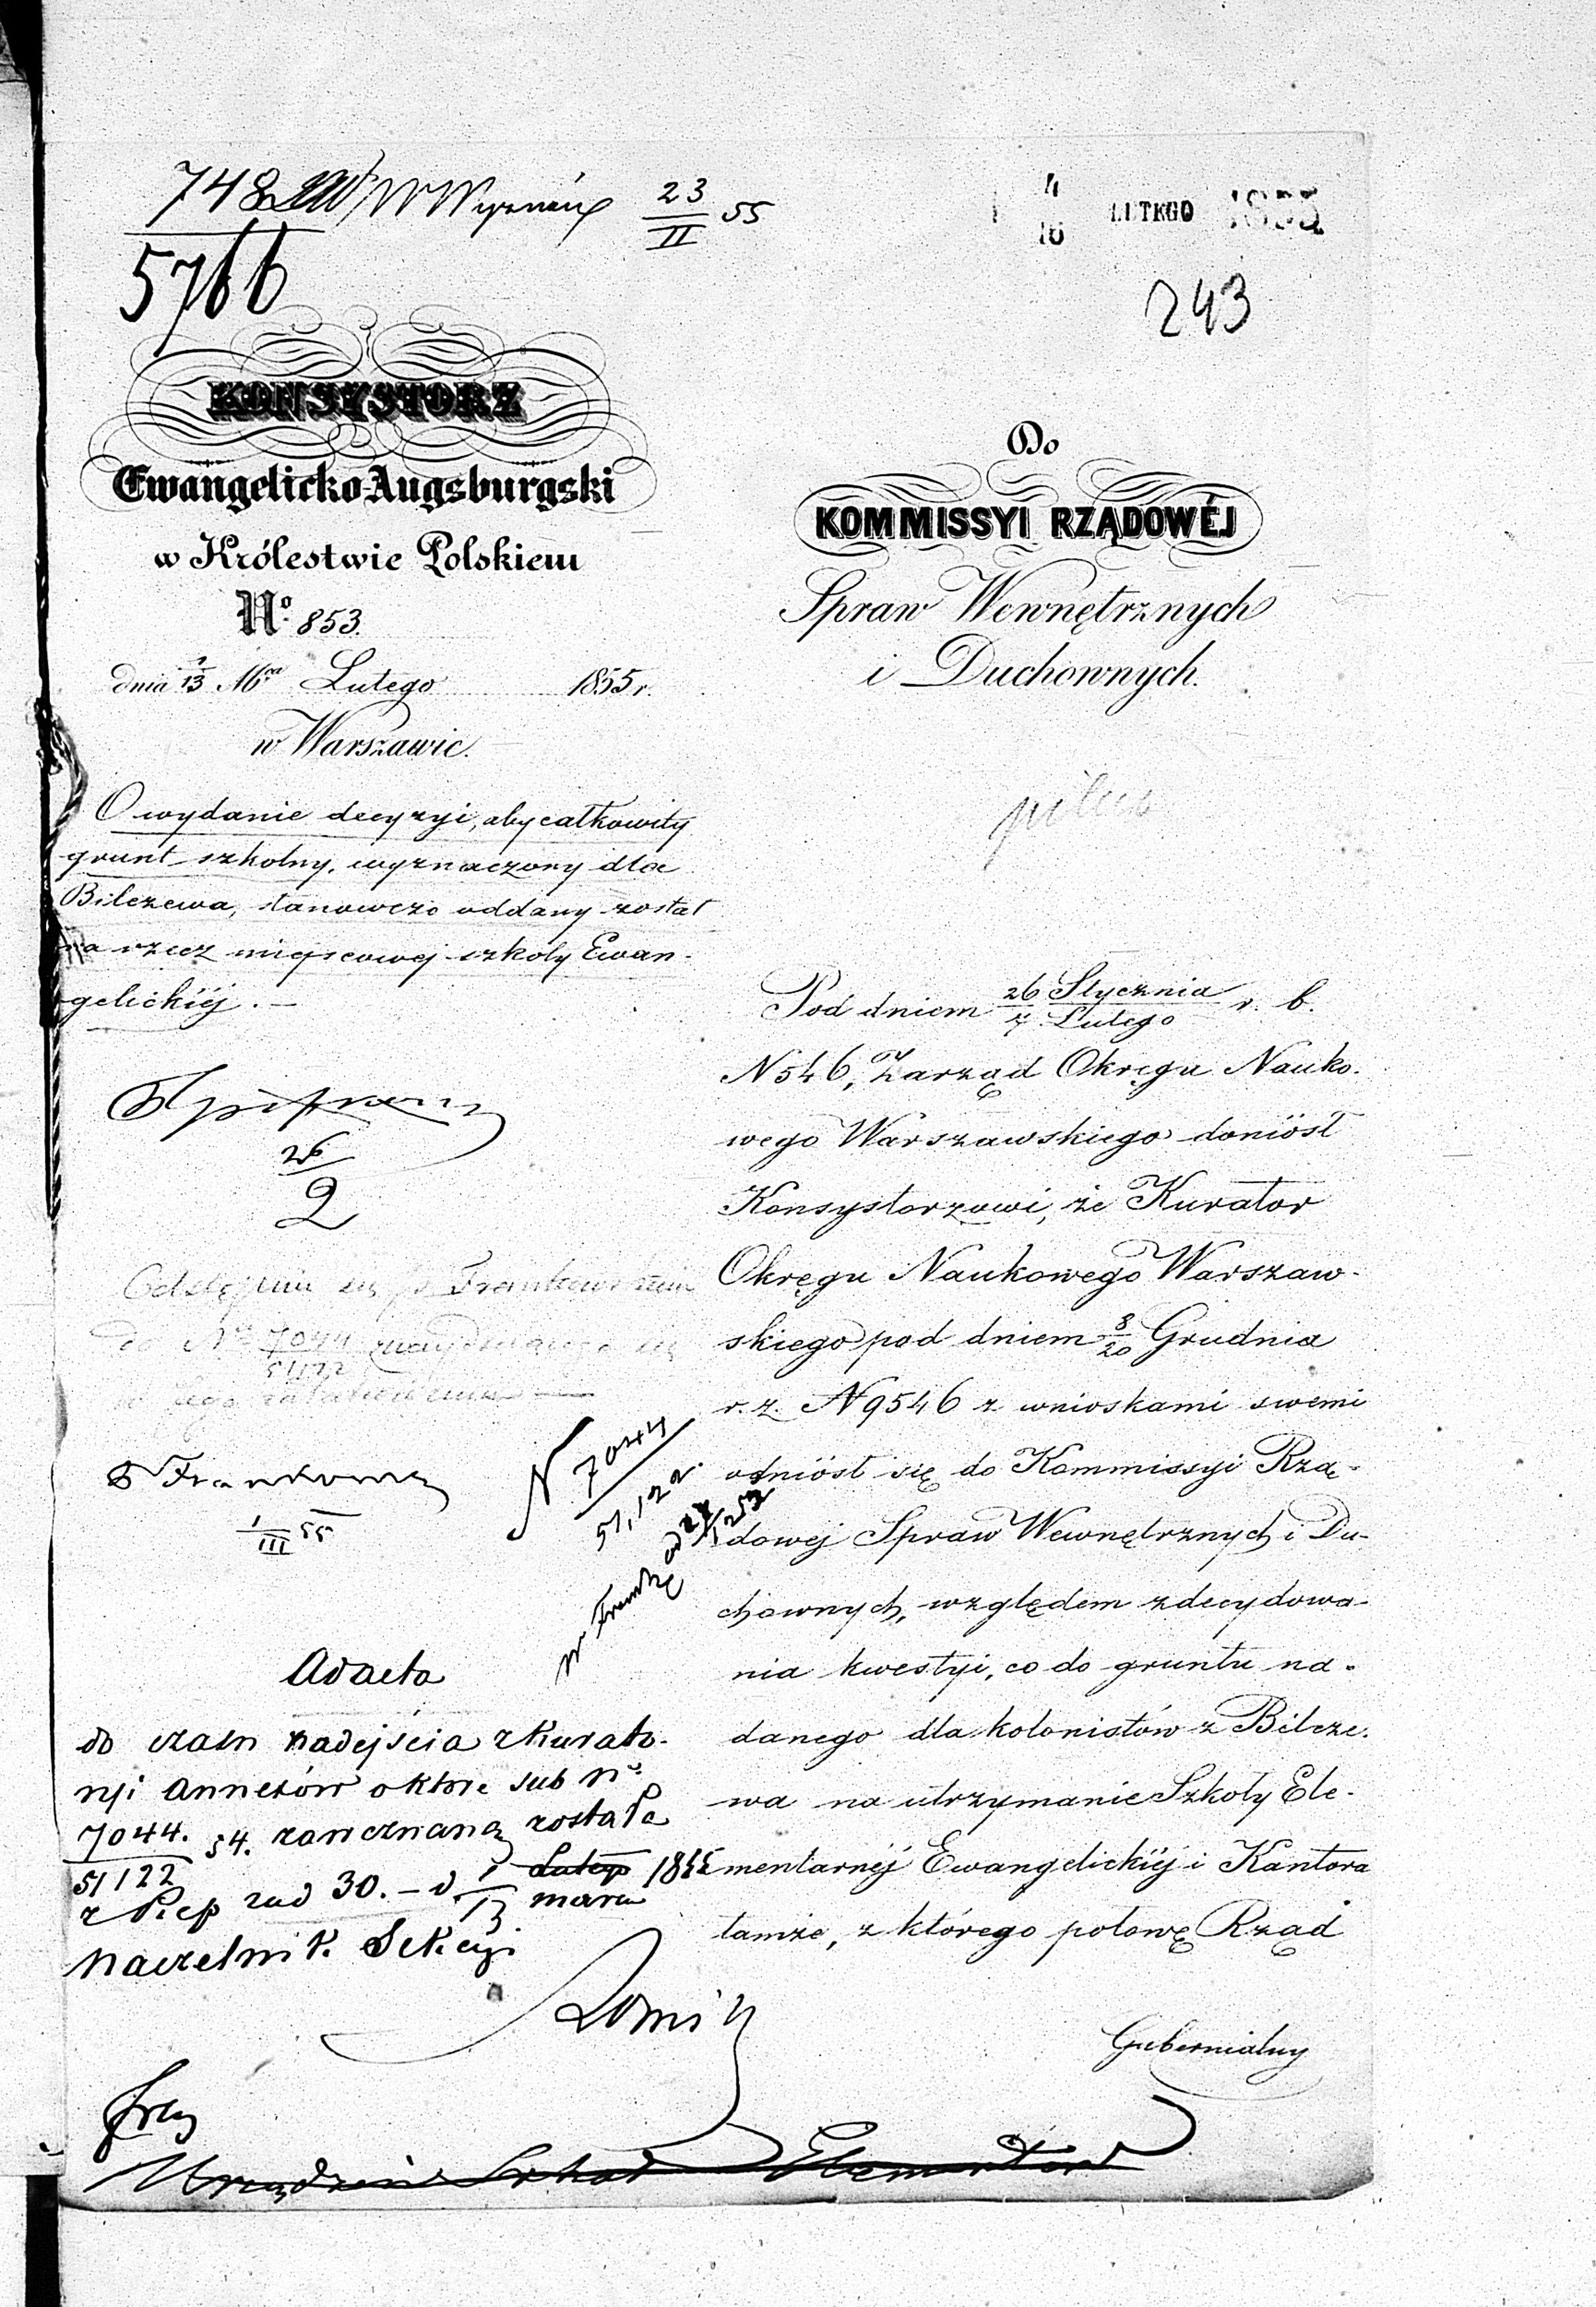 748
5766
W Wyznań
23/II 55
4/16 LUTEGO 1855
243
KONSYSTORZ
Ewangelicko-Augsburgski
w Królestwie Polskiem
No. 853.
dnia 1/13 Mca Lutego 1855 r.
w Warszawie.
O wydanie decyzyi, aby całkowity
grunt szkolny, wyznaczony dla
Bilczewa, stanowczo oddany został
na rzecz miejscowej szkoły Ewan-
gelickiéj. —
26/2
Odstąpiłem się p. Frankowskiemu
do No 7044/51122 znajdującego się
w jego załatwieniu —
Frankowski
1/III 55
N 7044/51,122.
Ad acta
do czasu nadejścia z Kurato-
ryi Annexów o które sub No
7044/51122 54. zawezwaną została
z Rep rud 30. – d. 1/13 Lutego marca 1855
Naczelnik Sekcyi
Do
KOMMISSYI RZĄDOWÉJ
Spraw Wewnętrznych
i Duchownych.
pilno
Pod dniem 26 Stycznia/7 Lutego r. b.
N 546, Zarząd Okręgu Nauko-
wego Warszawskiego doniósł
Konsystorzowi, że Kurator
Okręgu Naukowego Warszaw-
skiego pod dniem 8/20 Grudnia
r. z. N 9546 z wnioskami swemi
odniósł się do Kommissyi Rzą-
dowej Spraw Wewnętrznych i Du-
chownych, względem zdecydowa-
nia kwestyi, co do gruntu na-
danego dla kolonistów z Bilcze-
wa na utrzymanie Szkoły Ele-
mentarnéj Ewangelickiéj i Kantora
tamże, z którego połowę Rząd
Gubernialny
Urządzenie Szkół Elementar